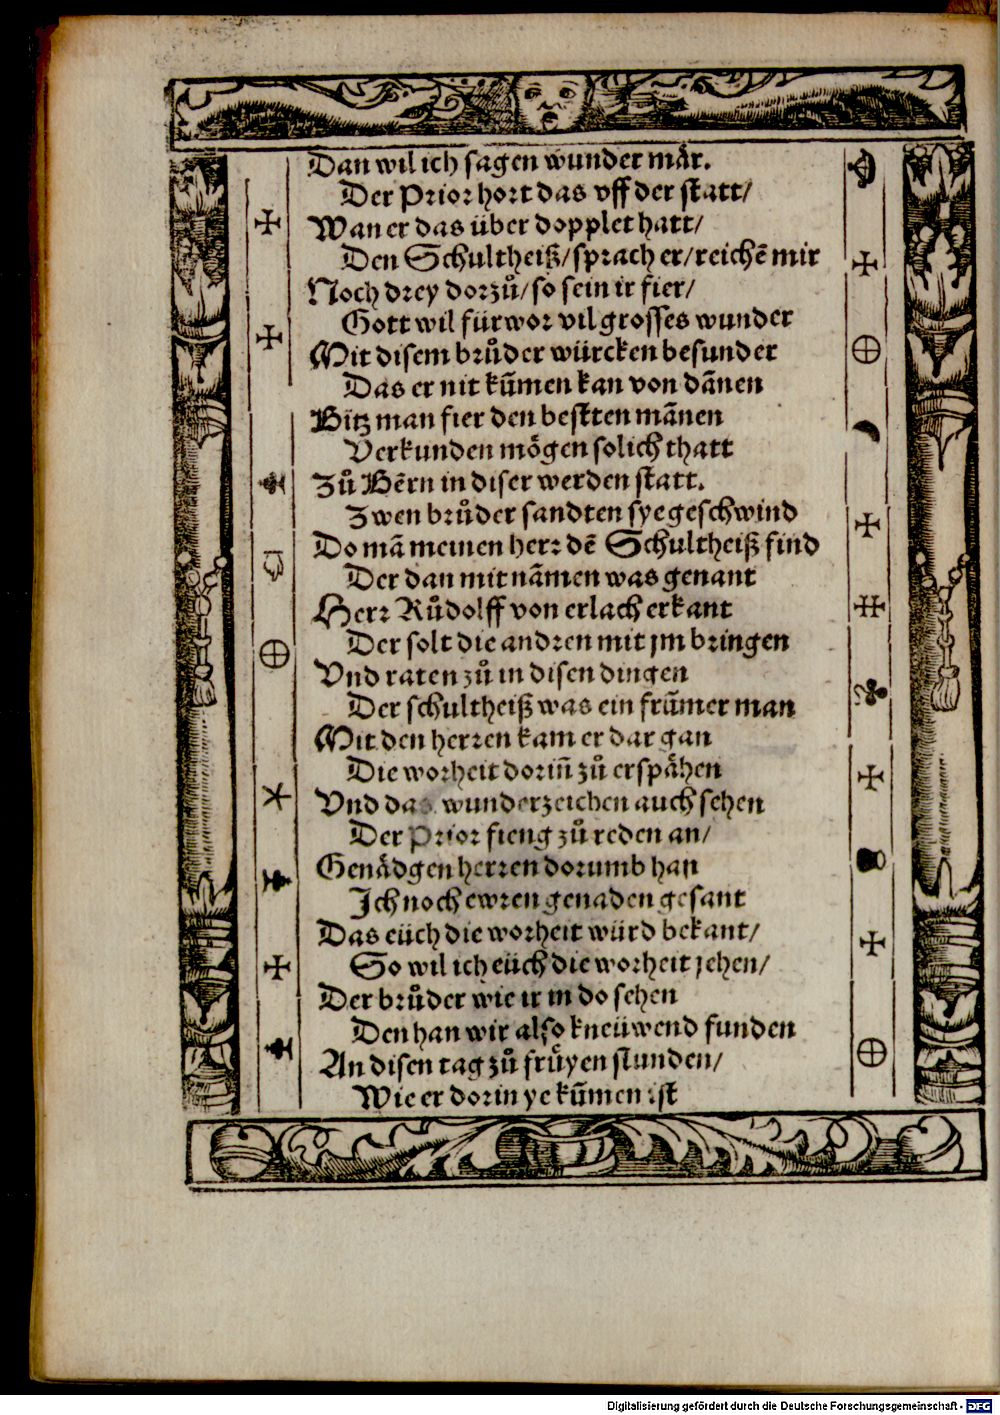 Dan wil ich sagen wunder mär.
Der Prior hort das vff der statt/
Wan er das über dopplet hatt/
Den Schultheiß/sprach er/reichē mir
Noch drey dorzů/so sein ir fier/
Gott wil fürwor vil grosses wunder
Mit disem brůder würcken besunder
Das er nit kūmen kan von dānen
Bitz man fier den bestten mānen
Verkunden mögen solich thatt
Zů Bērn in diser werden statt.
Zwen brůder sandten sye geschwind
Do mā meinen herr dē Schultheiß find
Der dan mit nāmen was genant
Herr Růdolff von erlach erkant
Der solt die andren mit jm bringen
Vnd raten zů in disen dingen
Der schultheiß was ein frūmer man
Mit den herren kam er dar gan
Die worheit dorin̄ zů erspähen
Vnd das wunderzeichen auch sehen
Der Prior fieng zů reden an/
Genädgen herren dorumb han
Ich noch ewren genaden gesant
Das eüch die worheit würd bekant/
So wil ich eüch die worheit jehen/
Der brůder wie ir in do sehen
Den han wir also kneüwend funden
An disen tag zů frůyen stunden/
Wie er dorin ye kūmen ist
Digitalisierung gefördert durch die Deutsche Forschungsgemeinschaft - DFG